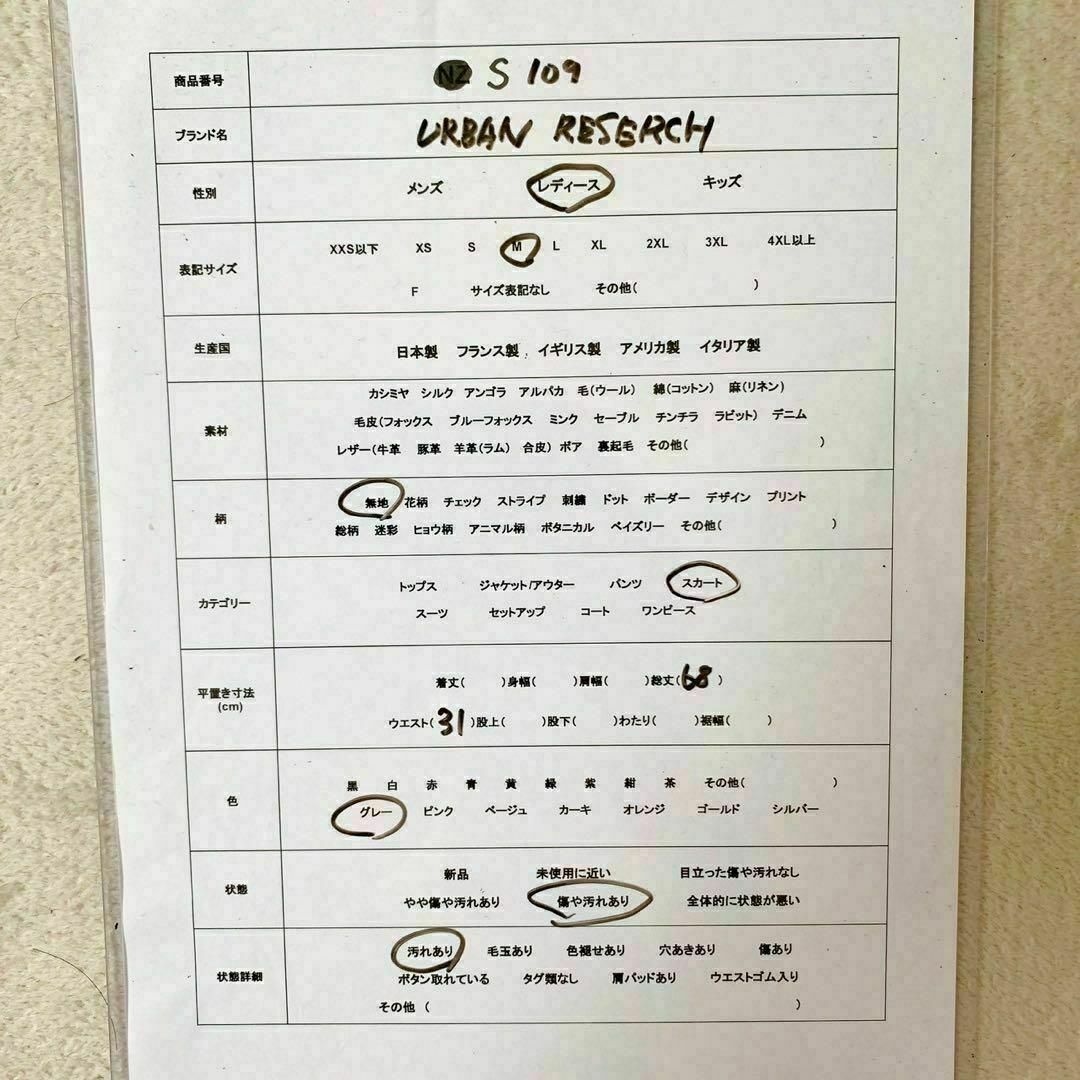 商品番号 NZ S 109
ブランド名 URBAN RESERCH
性別 メンズ レディース キッズ
表記サイズ XXS以下 XS S M L XL 2XL 3XL 4XL以上
F サイズ表記なし その他( )
生産国 日本製 フランス製 イギリス製 アメリカ製 イタリア製
素材 カシミヤ シルク アンゴラ アルパカ 毛(ウール) 綿(コットン) 麻(リネン)
毛皮(フォックス ブルーフォックス ミンク セーブル チンチラ ラビット) デニム
レザー(牛革 豚革 羊革(ラム) 合皮) ボア 裏起毛 その他( )
柄 無地 花柄 チェック ストライプ 刺繍 ドット ボーダー デザイン プリント
総柄 迷彩 ヒョウ柄 アニマル柄 ボタニカル ペイズリー その他( )
カテゴリー トップス ジャケット/アウター パンツ スカート
スーツ セットアップ コート ワンピース
平置き寸法 (cm) 着丈( )身幅( )肩幅( )総丈(68 )
ウエスト(31 )股上( )股下( )わたり( )裾幅( )
色 黒 白 赤 青 黄 緑 紫 紺 茶 その他( )
グレー ピンク ベージュ カーキ オレンジ ゴールド シルバー
状態 新品 未使用に近い 目立った傷や汚れなし
やや傷や汚れあり 傷や汚れあり 全体的に状態が悪い
状態詳細 汚れあり 毛玉あり 色褪せあり 穴あきあり 傷あり
ボタン取れている タグ類なし 肩パッドあり ウエストゴム入り
その他 ( )